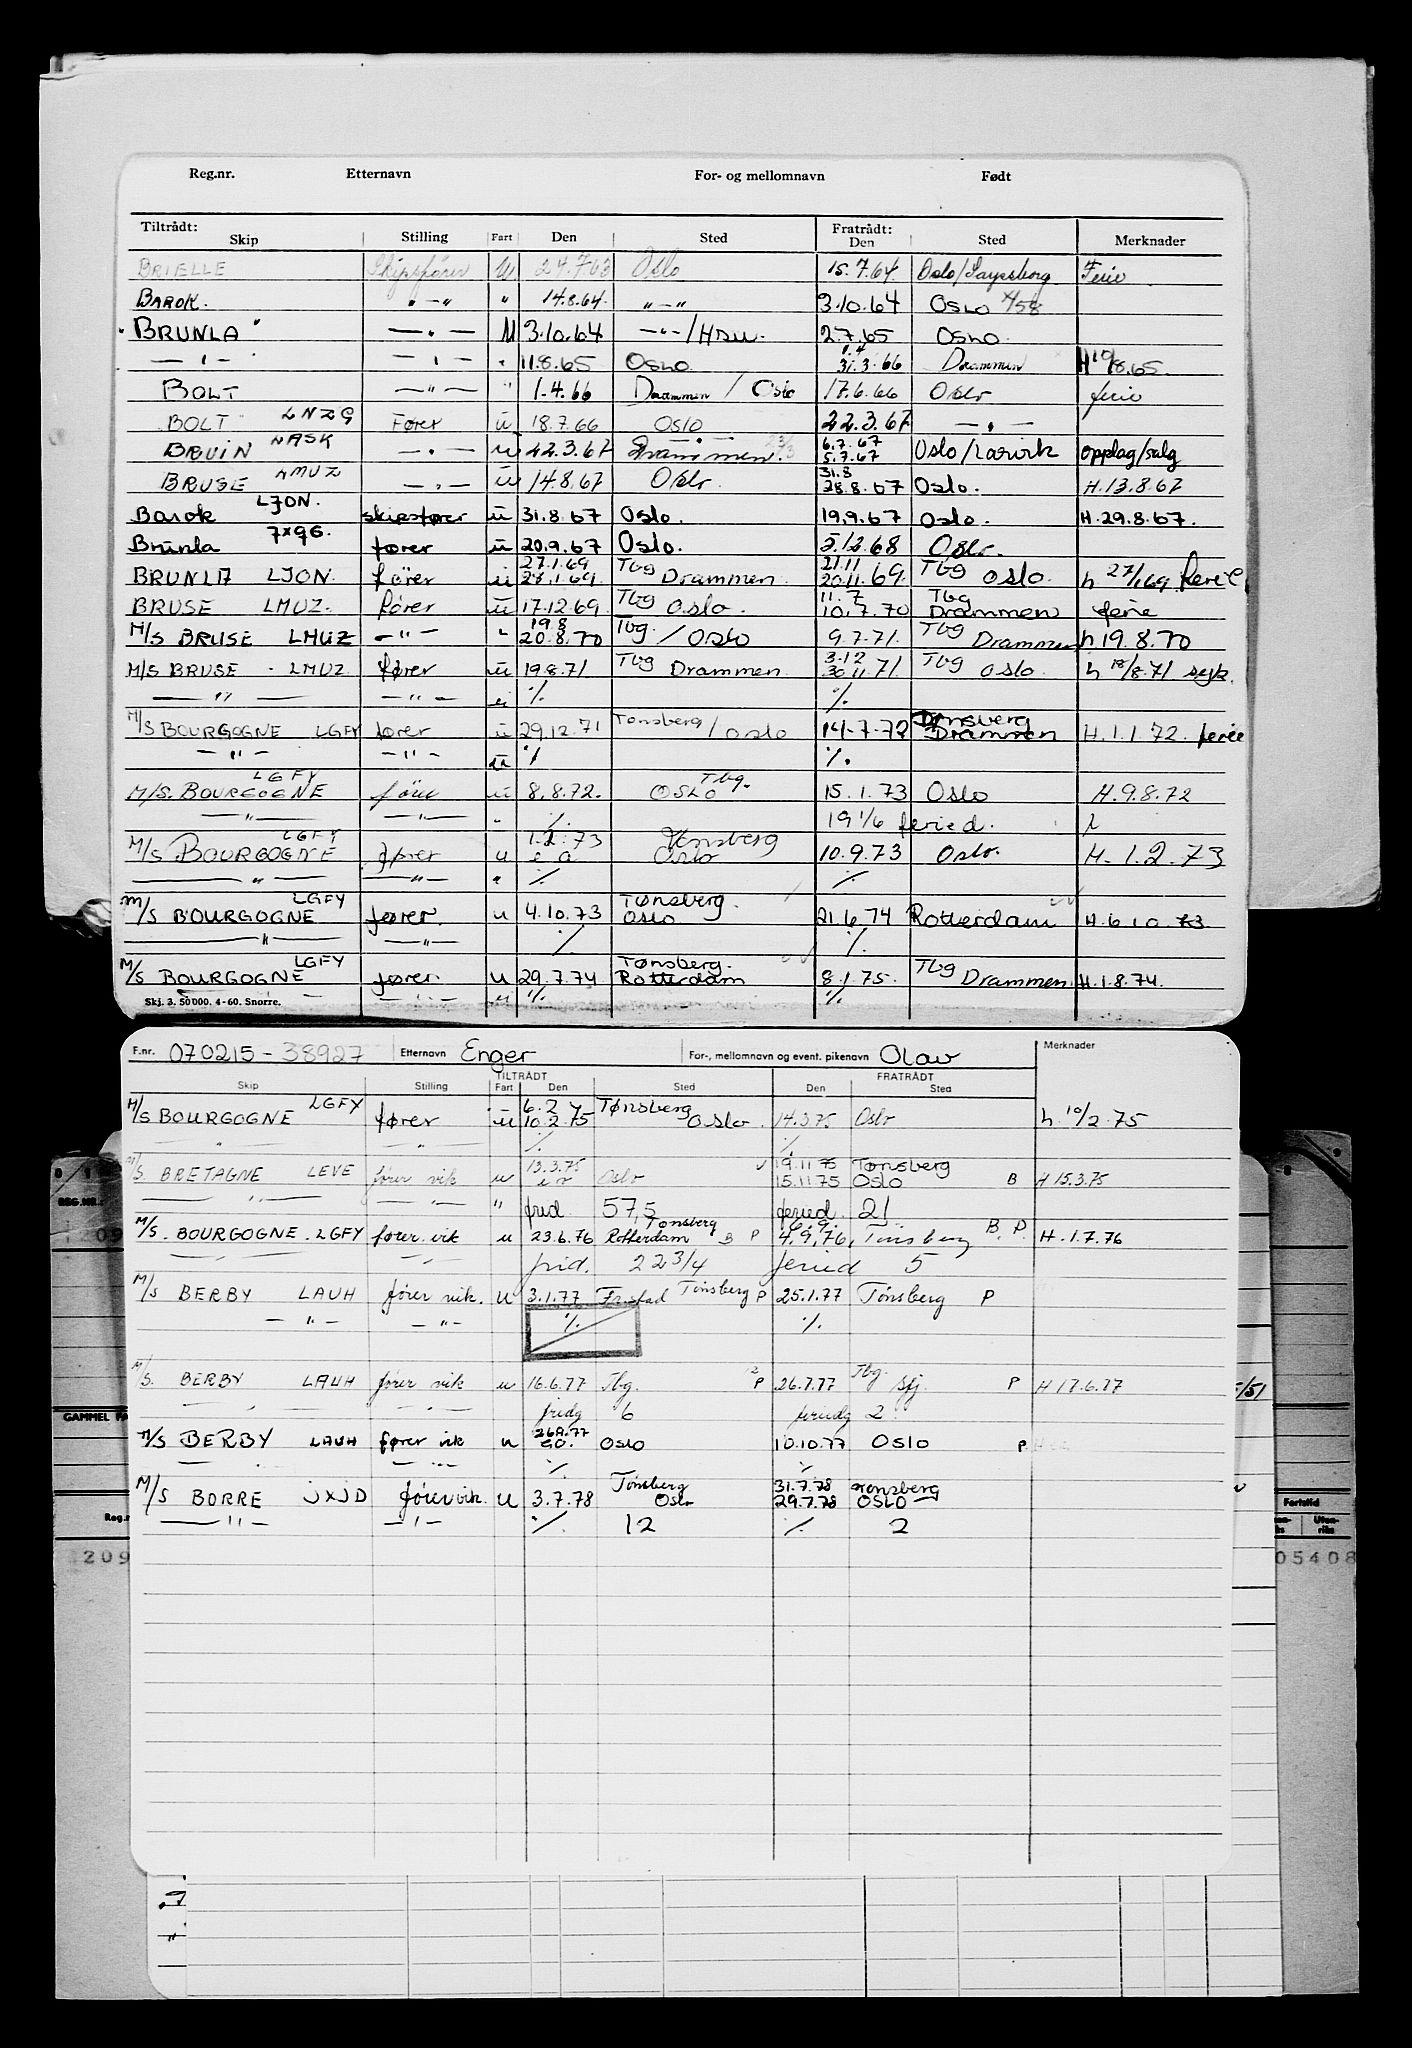 Reg.nr. Etternavn For- og mellomnavn Født
Tiltrådt: Fratrådt:
Skip Stilling Fart Den Sted Den Sted Merknader
BRIELLE Skipsfører U 24.7.63 Oslo 15.7.64 Oslo/Sarpsborg Ferie
BAROK. " — " " 14.8.64 " — " 3.10.64 OSLO 4/58
"BRUNLA" — " — U 3.10.64 — " — / 2.7.65 OSLO
— " — — " — " 11.8.65 OSLO 1.4 31.3.66 Drammen H 10/8.65.
BOLT — " — " 1.4.66 Drammen / Oslo 17.6.66 Oslo ferie
BOLT LNZG Fører u 18.7.66 OSLO 22.3.67 — " —
BRUIN LASK — " — u 22.3.67 Drammen. 6.7.67 5.7.67 Oslo/Larvik opplag/salg
BRUSE LMUZ — " — u 14.8.67 Oslo. 31.8 28.8.67 Oslo. H.13.8.67
Barok LJON. skipsfører u 31.8.67 Oslo. 19.9.67 Oslo. H.29.8.67.
Brunla fører u 20.9.67 Oslo. 5.12.68 Oslo.
BRUNLA LJON. fører u 27.1.69 28.1.69. Tbg Drammen. 21.11 20.11.69. Tbg Oslo. h 27/1.69 ferie
BRUSE LMUZ. fører u 17.12.69. Tbg Oslo. 11.7 10.7.70 Tbg Drammen ferie
M/S BRUSE LMUZ — " — " 19.8 20.8.70 Tbg. / Oslo 9.7.71. Tbg Drammen h 19.8.70
M/S BRUSE - LMUZ fører u 19.8.71 Tbg Drammen 3.12 30.11.71. Tbg Oslo. h 18/8.71 syk.
— " — — " — u % %
M/S BOURGOGNE LGFY fører u 29.12.71 Tønsberg / Oslo 14.7.72 Tønsberg Drammen H.1.1.72. ferie
— " — — " — u % %.
M/S. BOURGOGNE LGFY fører u 8.8.72. OSLO Tbg. 15.1.73 Oslo H.9.8.72
— " — — " — " %. 19 1/6 feried.
M/S BOURGOGNE LGFY fører u 1.2.73 Tønsberg Oslo 10.9.73 Oslo. H.1.2.73
— " — — " — " % %
M/S BOURGOGNE LGFY fører. u 4.10.73 Tønsberg. Oslo 21.6.74 Rotterdam H.6.10.73.
— " — — " — % %.
M/S BOURGOGNE LGFY fører. u 29.7.74 Tønsberg. Rotterdam 8.1.75. Tbg Drammen. H.1.8.74.
— " — — " — " % %
Skj. 3. 50 000. 4-60. Snorre.
F.nr. 070215-38927 Etternavn Enger For-, mellomnavn og event. pikenavn Olav Merknader
TILTRÅDT FRATRÅDT
Skip Stilling Fart Den Sted Den Sted
M/S BOURGOGNE LGFY fører u 6.2 10.2.75 Tønsberg Oslo. 14.3.75 Oslo h. 10/2.75
" — " — %. %.
M/S. BRETAGNE LEVE fører vik u 13.3.75 Oslo 19.11.75 15.11.75 Tønsberg OSLO B H 15.3.75
— " — — " — " frid. 57,5 feried. 21
M/S. BOURGOGNE. LGFY fører. vik u 23.6.76 Tønsberg Rotterdam B P 4.9.76. Tønsberg B. P. H.1.7.76
— " — — " — frid. 22 3/4 feried 5
M/S BERBY LAUH fører vik. u 3.1.77 Fr.stad Tønsberg P 25.1.77 Tønsberg P
— " — — " — %. %.
M/S. BERBY LAUH fører vik u 16.6.77 Tbg. P 26.7.77 Tbg. Sfj. P H 17.6.77
— " — — " — fridg 6 feriedg 2
M/S BERBY LAUH fører vik u 26.9.77 OSLO 10.10.77 OSLO P.
— " — — " — % %
M/S BORRE JXJD fører vik. u 3.7.78 Tønsberg Oslo 31.7.78 29.7.78 Tønsberg OSLO
— " — — " — %. 12 %. 2
0 1
REG.NR.:
GAMMEL
Reg.n
209
5/51
Fartstid
Uten-
riks
05408